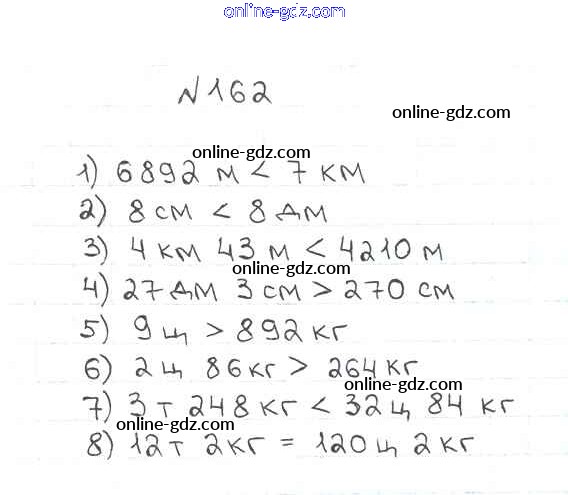 online-gdz.com
№162
online-gdz.com
online-gdz.com
1) 6892 м < 7 км
2) 8 см < 8 дм
3) 4 км 43 м < 4210 м
online-gdz.com
4) 27 дм 3 см > 270 см
5) 9 ц > 892 кг
6) 2 ц 86 кг > 264 кг
online-gdz.com
7) 3 т 248 кг < 32 ц 84 кг
online-gdz.com
8) 12 т 2 кг = 120 ц 2 кг